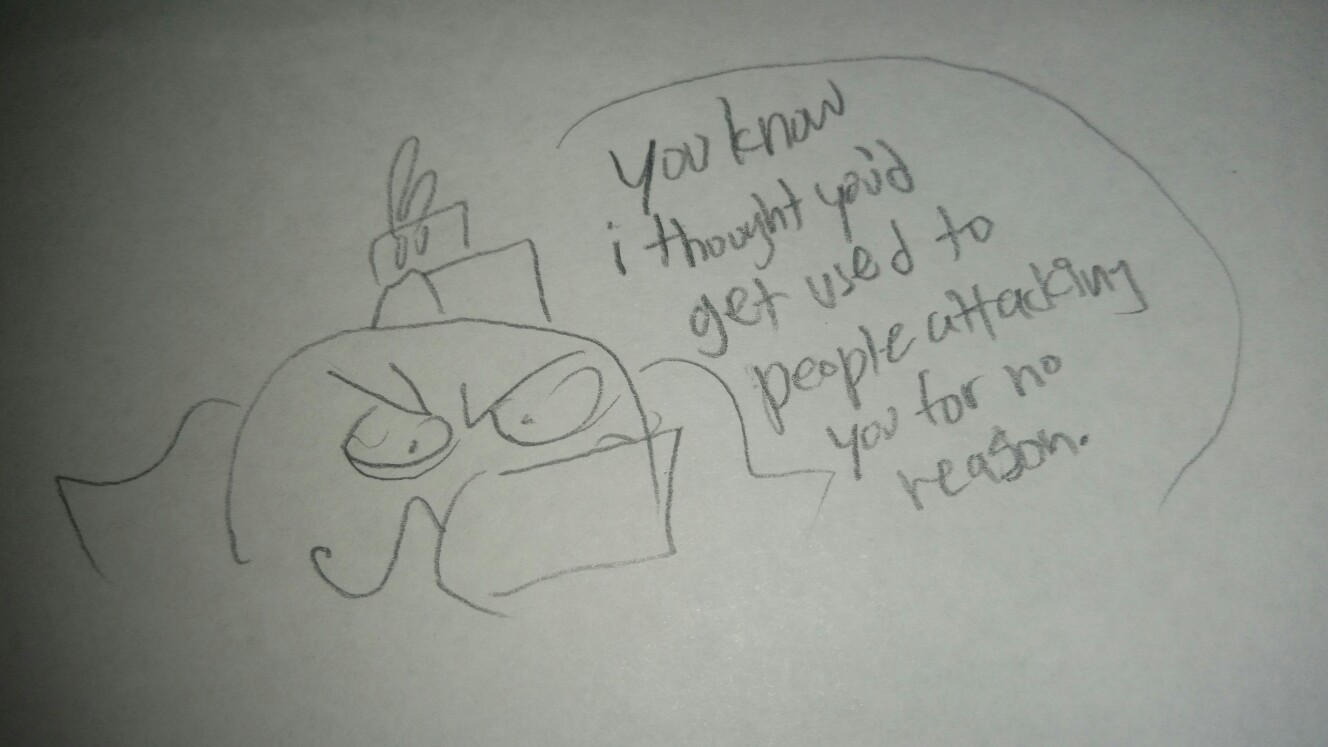 you know
i thought you'd
get used to
people attacking
you for no
reason.